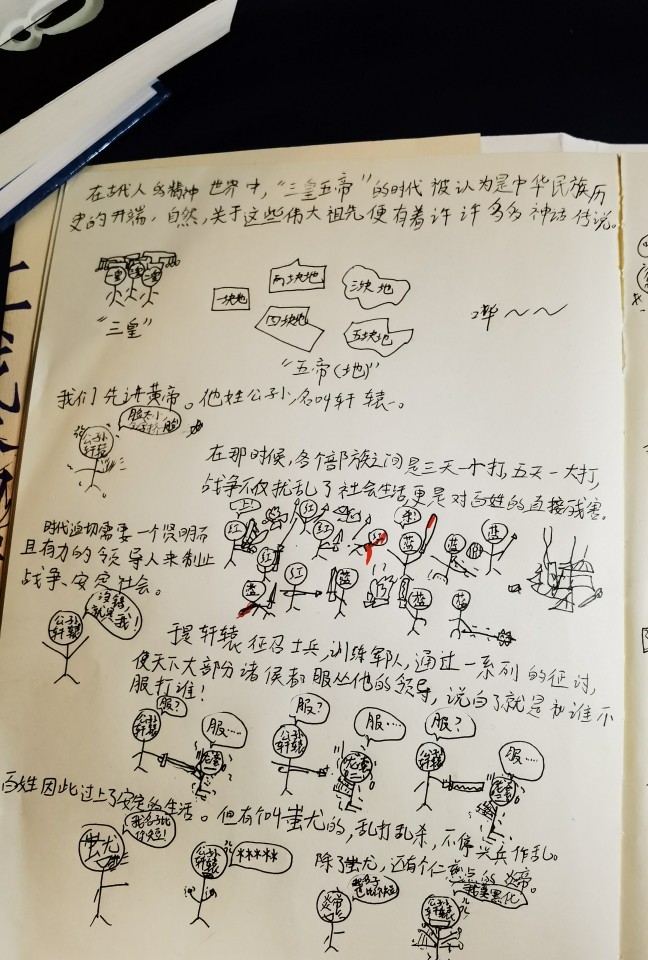 在古代人的精神世界中，“三皇五帝”的时代被认为是中华民族历
史的开端，自然，关于这些伟大祖先便有着许许多多神话传说。
一皇 二皇 三皇
“三皇”
一块地
两块地
三块地
四块地
五块地
“五帝(地)”
哗～～
我们先讲黄帝。他姓公孙，名叫轩辕。
公孙轩辕
在那时候，各个部族之间是三天一小打，五天一大打，
战争不仅扰乱了社会生活，更是对百姓的直接残害。
时代迫切需要一个贤明而
且有力的领导人来制止
战争、安定社会。
没错，就是我！
公孙轩辕
红 红 红 红 红 红
蓝 蓝 蓝 蓝 蓝 蓝
于是轩辕征召士兵，训练军队，通过一系列的征讨，
使天下大部分诸侯都服从他的领导，说白了就是谁不
服打谁！
服？
公孙轩辕
服……
服？
公孙轩辕
服……
服？
公孙轩辕
服……
百姓因此过上了安定的生活。但有个叫蚩尤的，乱打乱杀，不停兴兵作乱。
蚩尤
公孙轩辕
****
除了蚩尤，还有个仁慈点的炎帝。
炎帝
公孙轩辕